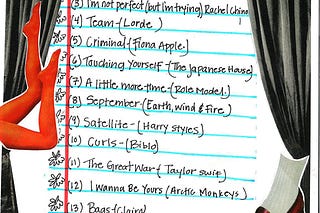 (3) I'm not perfect (but I'm trying) Rachel Chino
(4) Team - (Lorde)
(5) Criminal - (Fiona Apple)
(6) Touching Yourself - (The Japanese House)
(7) A little more time - (Role Model)
(8) September - (Earth, Wind & Fire)
(9) Satellite - (Harry Styles)
(10) Curls - (Bibio)
(11) The Great War - (Taylor Swift)
(12) I wanna Be Yours (Arctic Monkeys)
(13) Bags (Clairo)